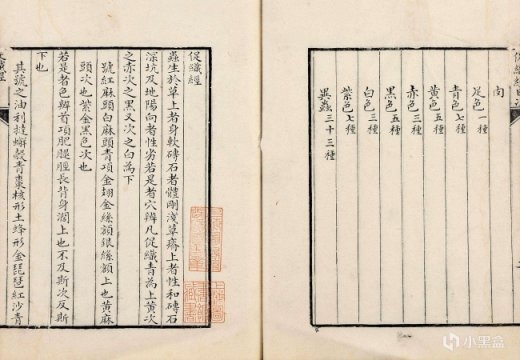 促織經目
足色一種
青色七種
黃色五種
赤色三種
黑色五種
白色三種
紫色七種
異蟲三十三種
促織經
蟲生於草上者身軟磚石者體剛淺草瘠土者性和磚石
深坑及地陽向者性劣若是者穴辨凡促織青為上黃次
之赤次之黑又次之白為下
號紅麻頭白麻頭青項金翅金絲額銀絲額上也黃麻
頭次也紫金黑色次也
若是者色辨首項肥腿脛長背身濶上也不及斯次反斯
下也
其號之油利撻蠏殼青棗核形土蜂形金琵琶紅沙青
小黑盒